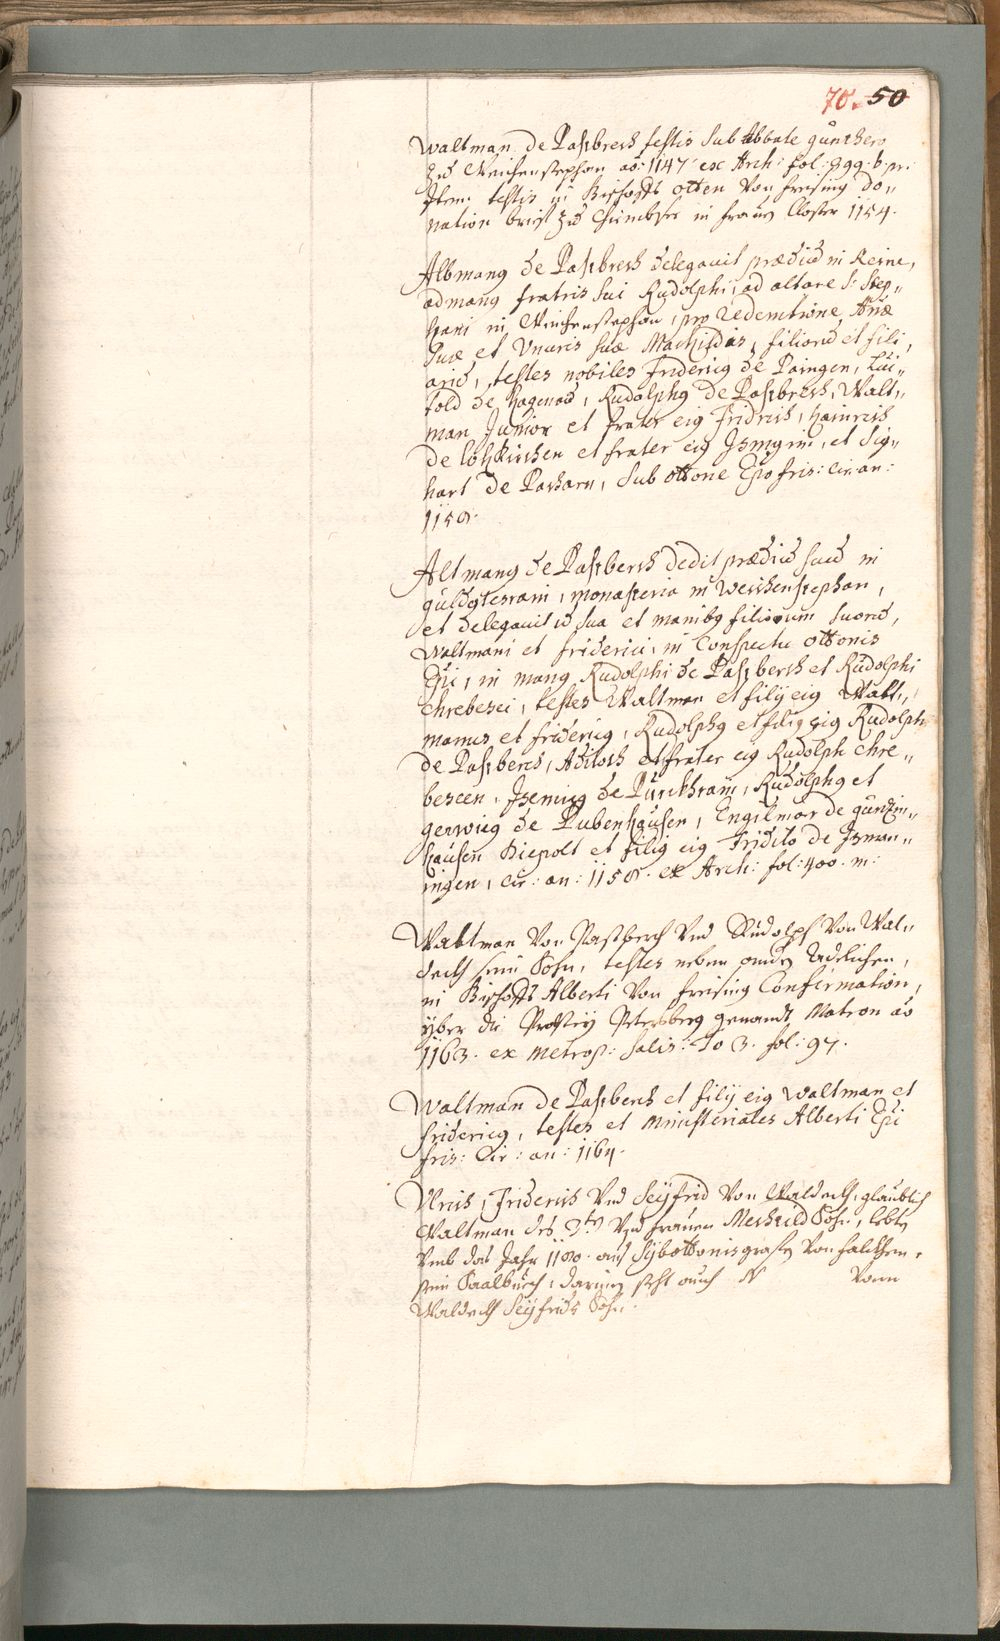 70. 50
Waltman de Paſtberch testis sub Abbate günthero
Zů Weichenstephan ao: 1147 ex Arch: fol: 399. b. pr:
Item testis in Bischoffs otten Von freising do„
nation brieff Zů Chiembsee in frauen Closter 1154.
Altmang de Paſtberch delegauit prædiũ in Reine,
ad mang fratris sui Rudolphi, ad altare S: Step„
hani in Weichenstephan, pro redemtione Aĩæ
suæ et Vxoris suæ Machtildis, filiorũ et fili,
arũ, testes nobiles Fridericg de Paingen, Lui„
told de hagenaũ, Rudolphg de Paſtberch, Walt„
man Junior et frater eig Fridrich, hainrich
de lohkirchen et frater eig Ismgrim, et Sig„
hart de Pacharn, sub ottone Epõ fris: cir: an:
1158.
Altmang de Paſtberch dedit prædiũ suũ in
güldgtesrain, monasterio in Weichenstephan,
et delegauit id sua et manibg filiorum suorũ,
Waltmani et friderici, in Conspectu ottonis
Epi, in mang Rudolphi de Paſtberch et Rudolphi
chrebesei, testes Waltman et filij eig Walt„
manus et fridericg, Rudolphg et filig eig Rudolph
de Paſtberch, Aditoch et frater eig Rudolph chre„
bescen, Isenrig de Purckhrain, Rudolphg et
gerwicg de Pubenhausen, Engilmar de günzin„
hausen Piepolt et filig eig Fridilo de Isman„
ingen, cir: an: 1158. ex Arch: fol: 400. m:
Waltman Von Pastberch Vnd Rudolph Von Wal„
deckh sein Sohn, testes neben andern Adelichen,
in Bischoffs Alberti Von freising Confirmation,
yber die Probstey Petersberg genandt Matron ao
1163. ex Metrop: Salis: To 3. fol: 97.
Waltman de Paſtberch et filij eig Waltman et
fridericg, testes et Ministeriales Alberti Epi
fris: Cir: an: 1164.
Vlrich, Friderich Vnd Seyfrid Von Waldeckh, glaublich
Waltman des 2ten Vnd frauen Mechtild Sohn, lebten
Vmb das Jahr 1180. aus Sybottonis grafen Von falckhen„
stein Saalbuch, darinen steht auch N Vonn
Waldeckh Seyfrids Sohn.